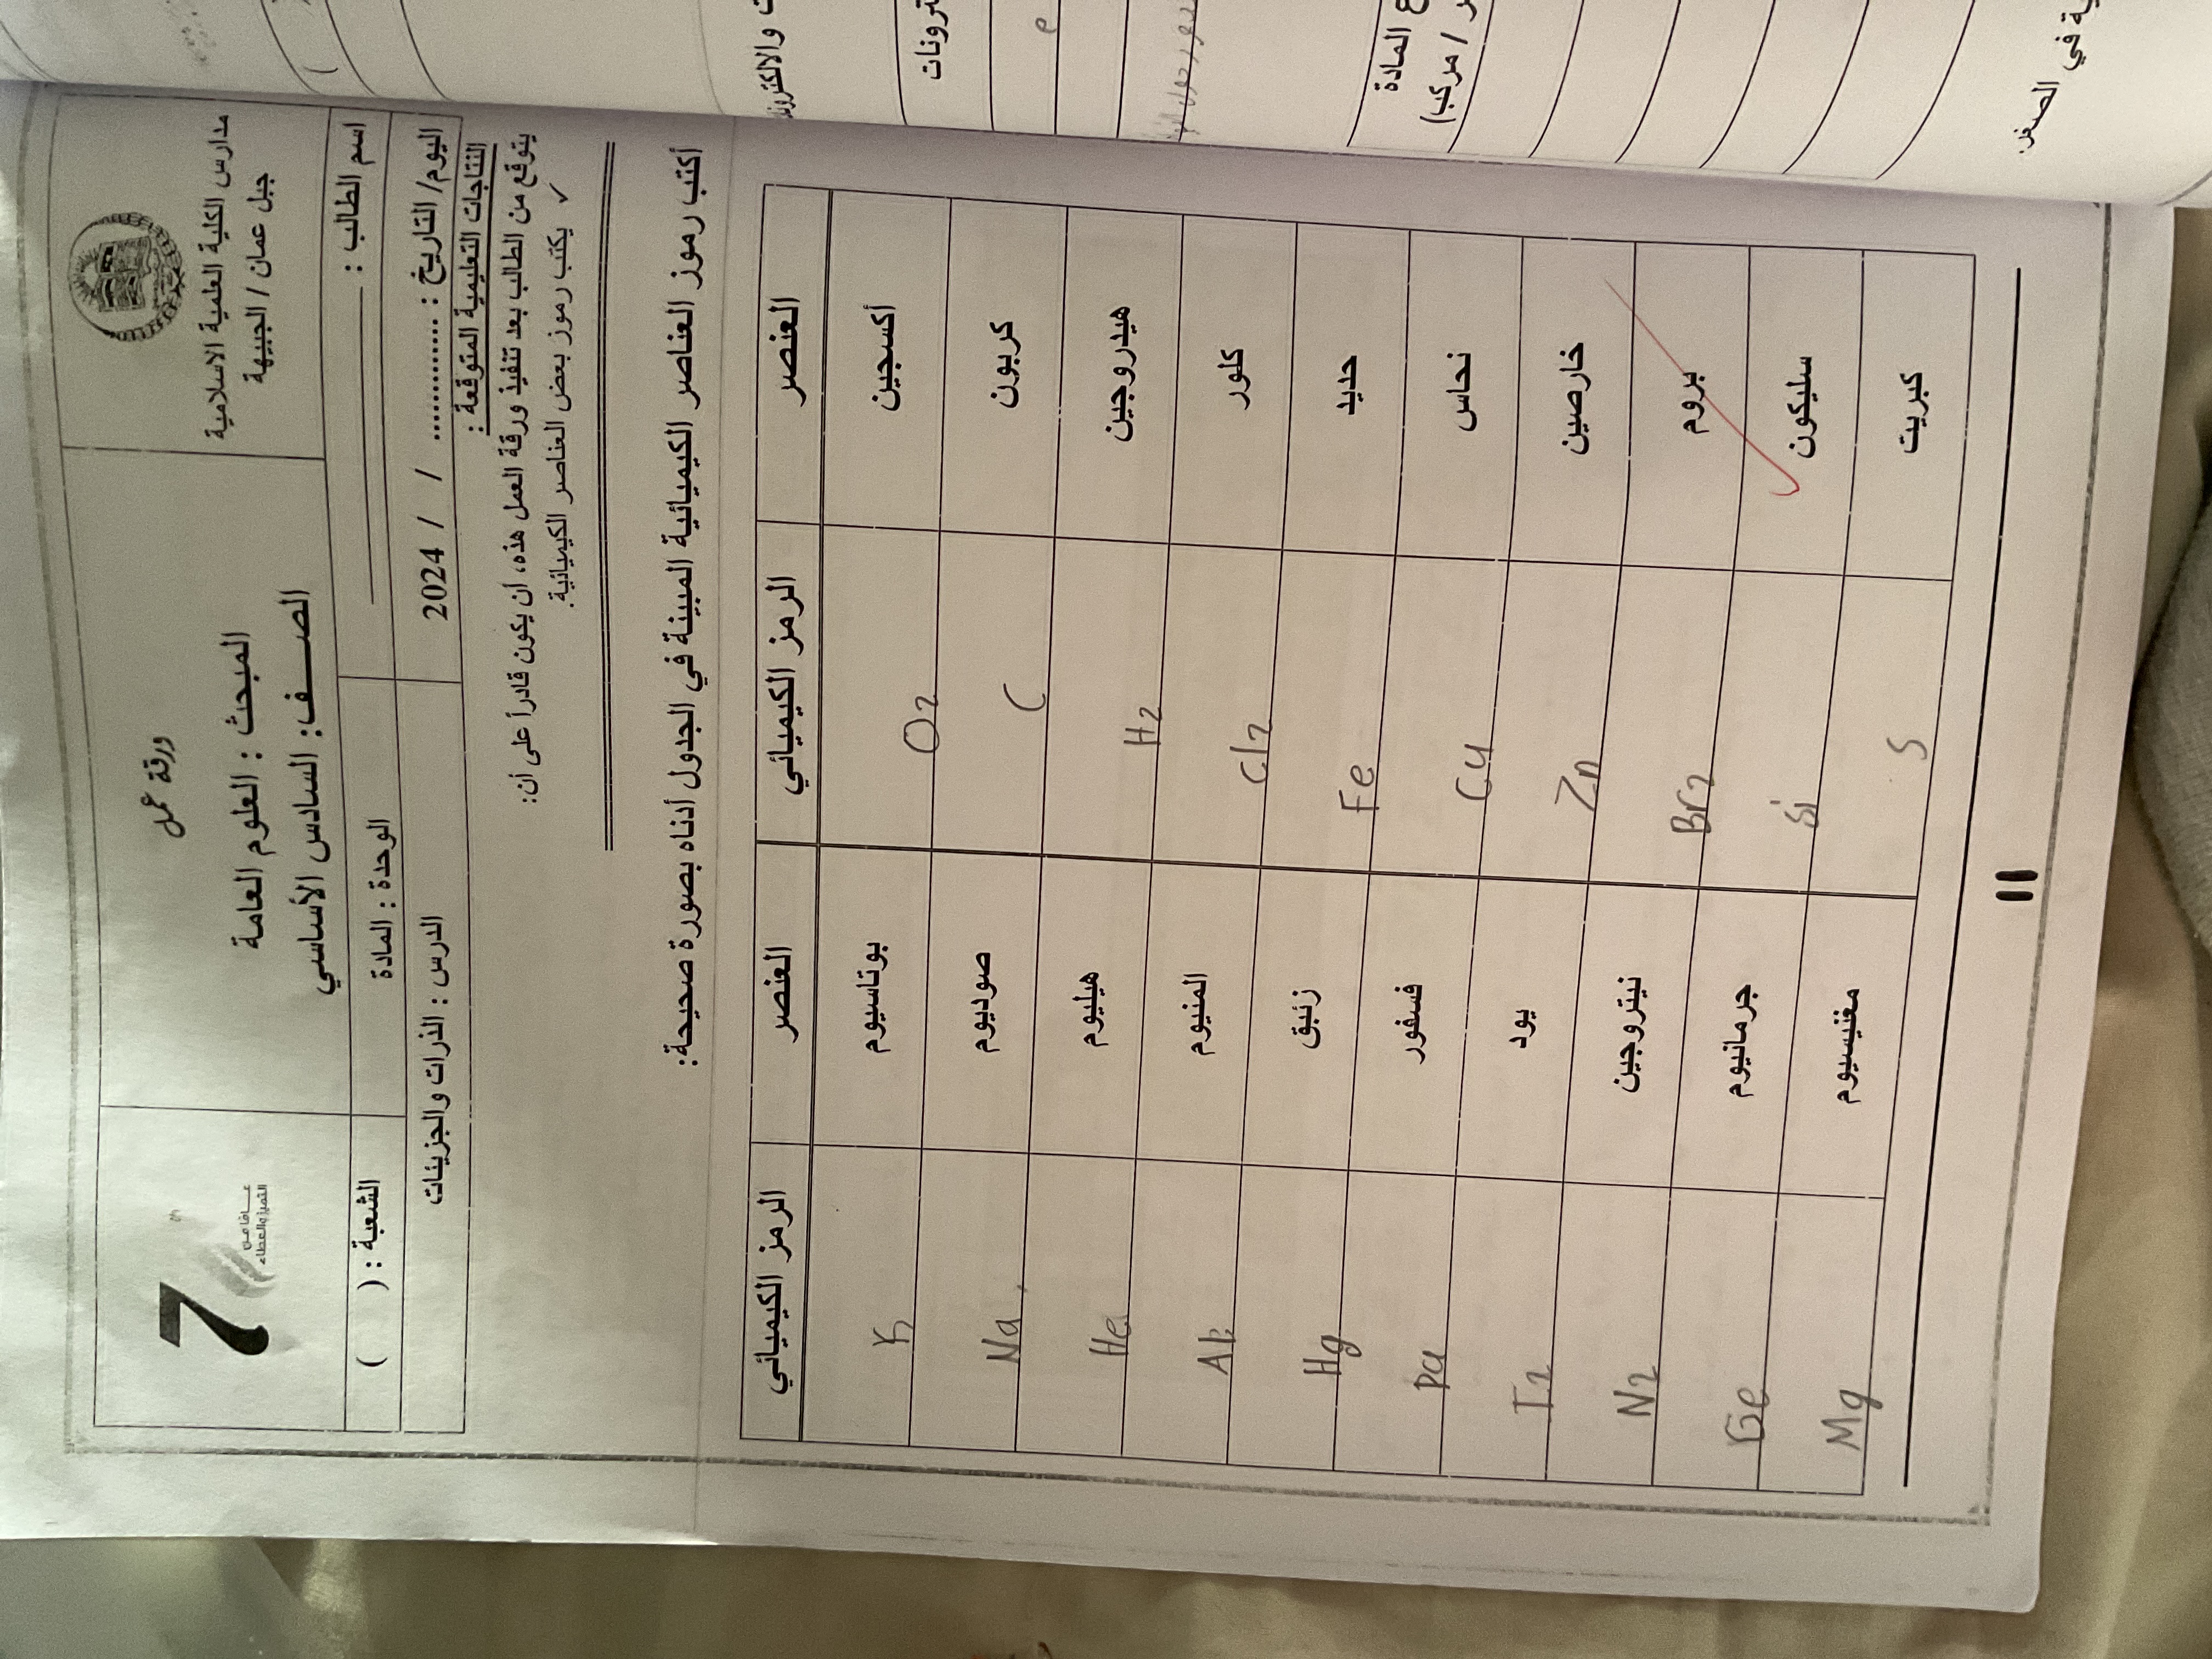 مدارس الكلية العلمية الاسلامية
جبل عمان / الجبيهة
ورقة عمل
المبحث : العلوم العامة
الصـــف: السادس الأساسي
7
عــافا من
التميز والعطاء
اسم الطالب :
الوحدة : المادة
الشعبة : ( )
اليوم/ التاريخ : ............ / / 2024
الدرس : الذرات والجزيئات
النتاجات التعليمية المتوقعة :
يتوقع من الطالب بعد تنفيذ ورقة العمل هذه، أن يكون قادراً على أن:
✓ يكتب رموز بعض العناصر الكيميائية.
أكتب رموز العناصر الكيميائية المبينة في الجدول أدناه بصورة صحيحة:
العنصر الرمز الكيميائي العنصر الرمز الكيميائي
أكسجين O2 بوتاسيوم K
كربون C صوديوم Na
هيدروجين H2 هيليوم He
كلور Cl2 المنيوم Al
حديد Fe زئبق Hg
نحاس Cu فسفور Pa
خارصين Zn يود I2
بروم Br2 نيتروجين N2
سليكون Si جرمانيوم Ge
كبريت S مغنيسيوم Mg
11
ترونات
ع المادة
ر / مركب)
ية في الصغر.